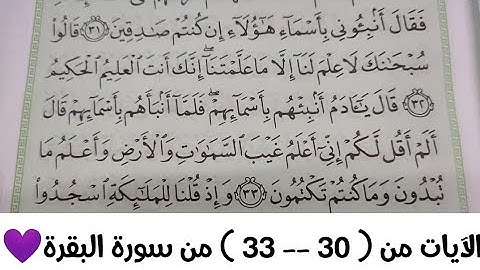 فَقَالَ أَنۢبِـُٔونِى بِأَسْمَآءِ هَٰٓؤُلَآءِ إِن كُنتُمْ صَٰدِقِينَ ٣١ قَالُوا۟
سُبْحَٰنَكَ لَا عِلْمَ لَنَآ إِلَّا مَا عَلَّمْتَنَآ ۖ إِنَّكَ أَنتَ ٱلْعَلِيمُ ٱلْحَكِيمُ
٣٢ قَالَ يَٰٓـَٔادَمُ أَنۢبِئْهُم بِأَسْمَآئِهِمْ ۖ فَلَمَّآ أَنۢبَأَهُم بِأَسْمَآئِهِمْ قَالَ
أَلَمْ أَقُل لَّكُمْ إِنِّىٓ أَعْلَمُ غَيْبَ ٱلسَّمَٰوَٰتِ وَٱلْأَرْضِ وَأَعْلَمُ مَا
تُبْدُونَ وَمَا كُنتُمْ تَكْتُمُونَ ٣٣ وَإِذْ قُلْنَا لِلْمَلَٰٓئِكَةِ ٱسْجُدُوا۟
الآيات من ( 30 -- 33 ) من سورة البقرة💜